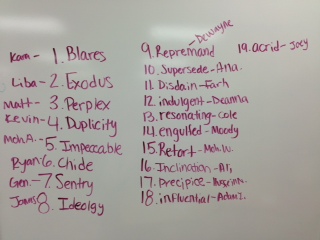 Kam- 1. Blares
Liba- 2. Exodus
Matt- 3. Perplex
Kevin- 4. Duplicity
Moh.A.- 5. Impeccable
Ryan- 6. Chide
Gen.- 7. Sentry
Jonas 8. Ideology
9. Repremand - Dewayne
10. Supersede - Ana.
11. Disdain - Farh
12. indulgent - Deanna
13. resonating - Cole
14. engulfed - Moody
15. Retort - Moh.W.
16. Inclination - Ari,
17. Precipice -
18. influential - Adam I.
19. acrid - Joey